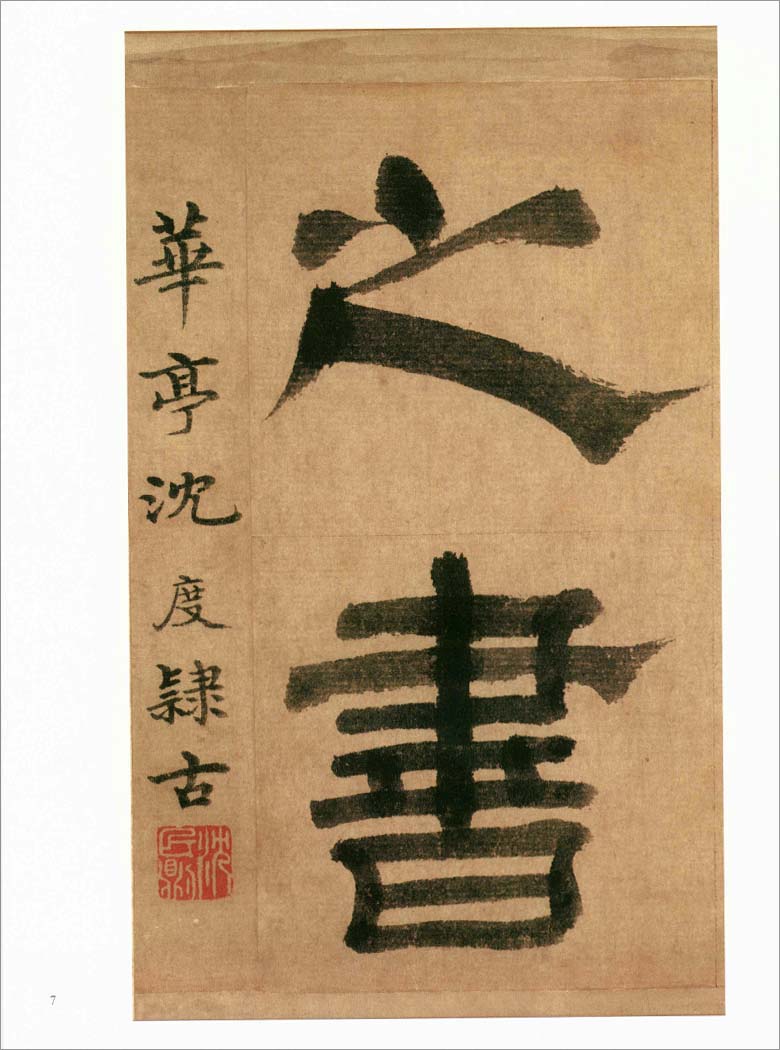 之書
華亭沈度隸古
沈民則
7